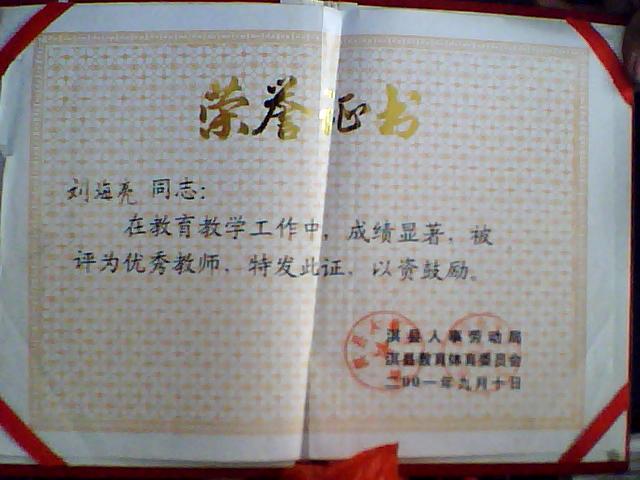 荣誉证书
刘海亮 同志：
在教育教学工作中，成绩显著，被
评为优秀教师，特发此证，以资鼓励。
淇县人事劳动局
淇县教育体育委员会
二00一年九月十日